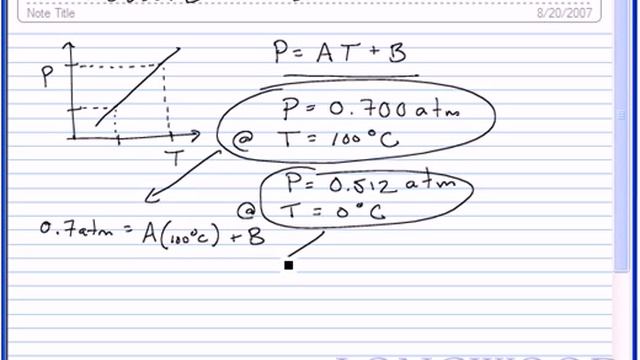 Note Title
8/20/2007
P
T
P = AT + B
P = 0.700 atm
@ T = 100°C
P = 0.512 atm
@ T = 0°C
0.7atm = A(100°C) + B